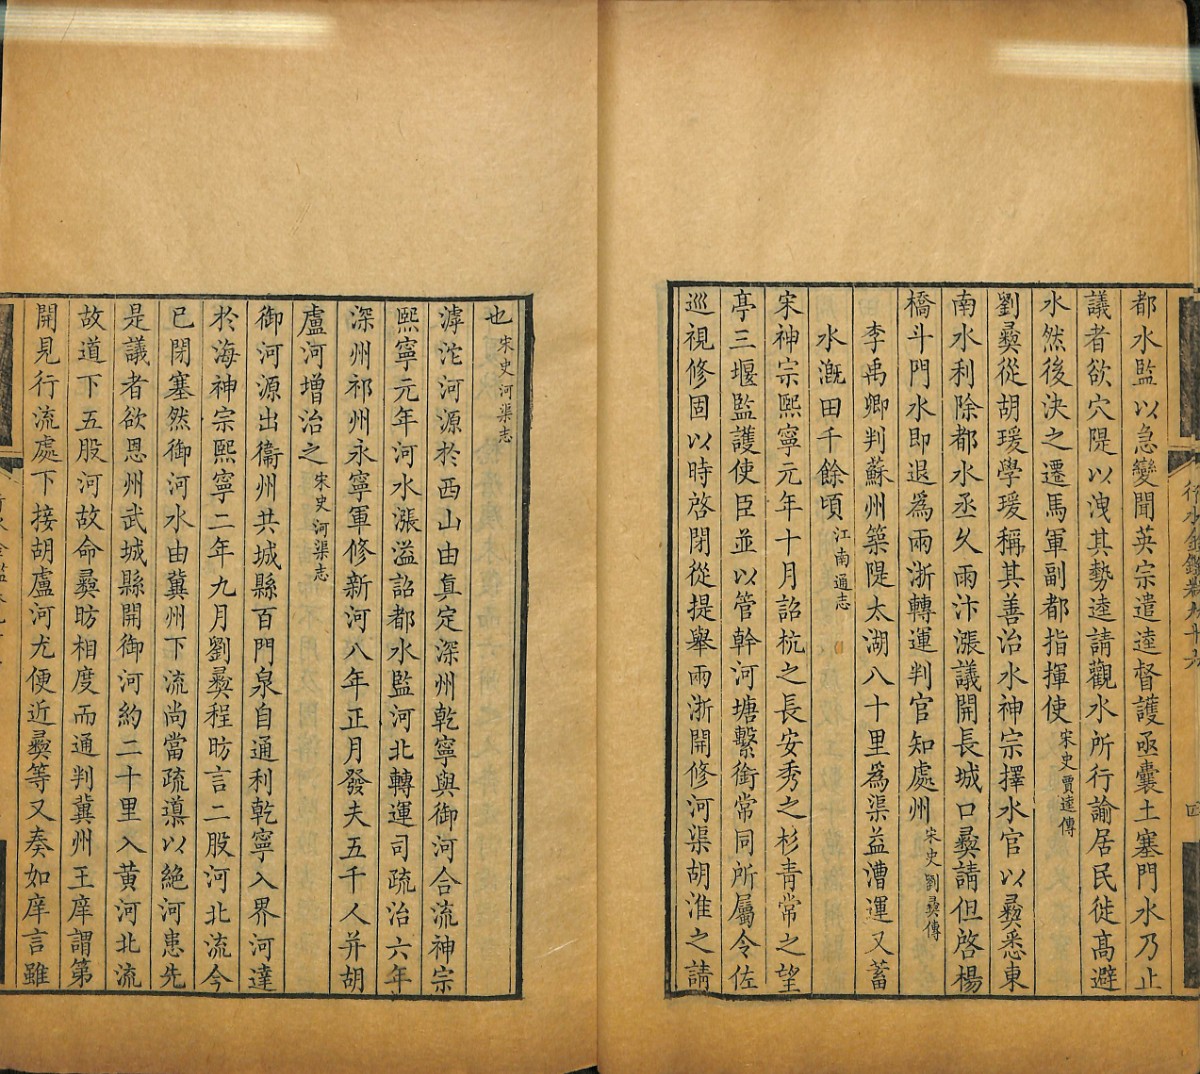 都水監以急變聞英宗遣逵督護亟囊土塞門水乃止
議者欲穴隄以洩其勢逵請觀水所行諭居民徙高避
水然後決之遷馬軍副都指揮使宋史賈逵傳
劉彝從胡瑗學瑗稱其善治水神宗擇水官以彝悉東
南水利除都水丞久雨汴漲議開長城口彝請但啓楊
橋斗門水即退爲兩浙轉運判官知處州宋史劉彝傳
李禹卿判蘇州築隄太湖八十里爲渠益漕運又蓄
水漑田千餘頃江南通志
宋神宗熙寧元年十月詔杭之長安秀之杉青常之望
亭三堰監護使臣並以管幹河塘繫銜常同所屬令佐
巡視修固以時啓閉從提舉兩浙開修河渠胡淮之請
也宋史河渠志
滹沱河源於西山由真定深州乾寧與御河合流神宗
熙寧元年河水漲溢詔都水監河北轉運司疏治六年
深州祁州永寧軍修新河八年正月發夫五千人并胡
盧河增治之宋史河渠志
御河源出衞州共城縣百門泉自通利乾寧入界河達
於海神宗熙寧二年九月劉彝程昉言二股河北流今
已閉塞然御河水由冀州下流尚當疏導以絶河患先
是議者欲恩州武城縣開御河約二十里入黃河北流
故道下五股河故命彝昉相度而通判冀州王庠謂第
開見行流處下接胡盧河尤便近彝等又奏如庠言雖